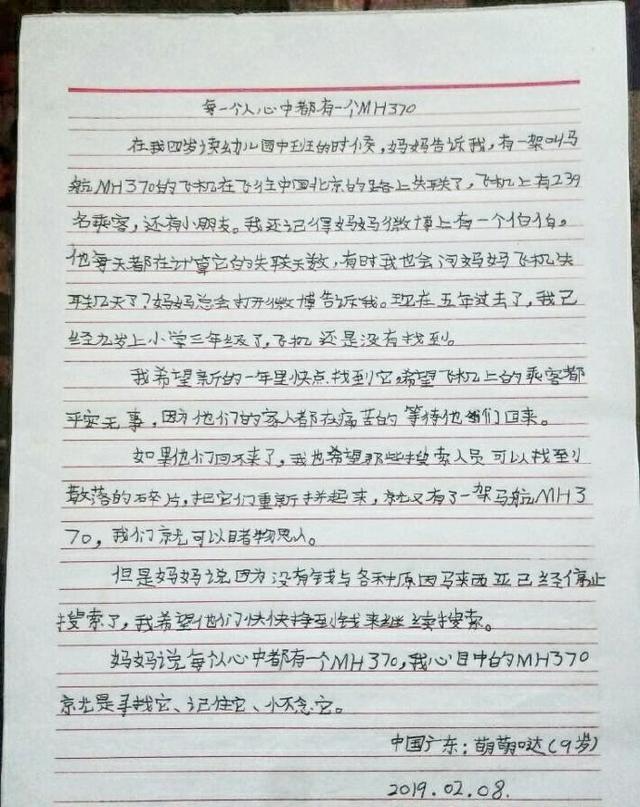 每一个人心中都有一个MH370
在我四岁读幼儿园中班的时候，妈妈告诉我，有一架叫马
航MH370的飞机在飞往中国北京的路上失联了，飞机上有239
名乘客，还有小朋友。我还记得妈妈微博上有一个伯伯。
他每天都在计算它的失联天数，有时我也会问妈妈飞机失
联几天了？妈妈总会打开微博告诉我。现在五年过去了，我已
经九岁上小学三年级了，飞机还是没有找到。
我希望新的一年里快点找到它，希望飞机上的乘客都
平安无事，因为他们的家人都在痛苦的等待他们回来。
如果他们回不来了，我也希望那些搜索人员可以找到
散落的碎片，把它们重新拼起来，就又有了一架马航MH3
70，我们就可以睹物思人。
但是妈妈说因为没有钱与各种原因马来西亚已经停止
搜索了，我希望他们快快挣到钱来继续搜索。
妈妈说每个人心中都有一个MH370，我心目中的MH370
就是寻找它、记住它、怀念它。
中国广东：萌萌哒（9岁）
2019.02.08.